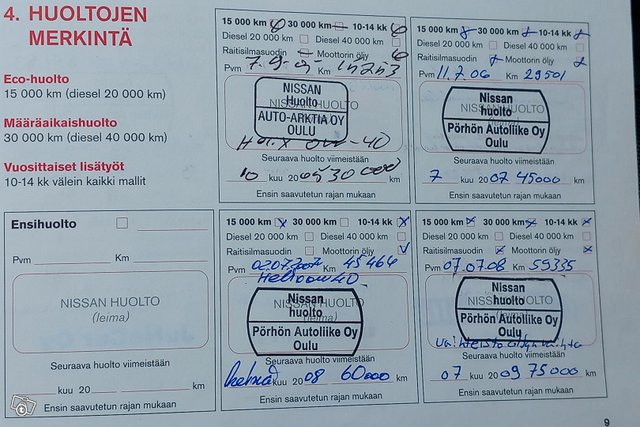 4. HUOLTOJEN
MERKINTÄ
Eco-huolto
15 000 km (diesel 20 000 km)
Määräaikaishuolto
30 000 km (diesel 40 000 km)
Vuosittaiset lisätyöt
10-14 kk välein kaikki mallit
15 000 km 30 000 km 10-14 kk
Diesel 20 000 km Diesel 40 000 km
Raitisilmasuodin Moottorin öljy
Pvm Km
NISSAN HUOLTO
NISSAN
Huolto
AUTO-ARKTIA OY
OULU
Seuraava huolto viimeistään
10 kuu 20 30 000 km
Ensin saavutetun rajan mukaan
15 000 km 30 000 km 10-14 kk
Diesel 20 000 km Diesel 40 000 km
Raitisilmasuodin Moottorin öljy
Pvm 11.7.06 Km 29501
NISSAN HUOLTO
Nissan
huolto
Pörhön Autoliike Oy
Oulu
Seuraava huolto viimeistään
7 kuu 2007 45000 km
Ensin saavutetun rajan mukaan
Ensihuolto
Pvm Km
NISSAN HUOLTO
(leima)
Seuraava huolto viimeistään
kuu 20 km
Ensin saavutetun rajan mukaan
15 000 km 30 000 km 10-14 kk
Diesel 20 000 km Diesel 40 000 km
Raitisilmasuodin Moottorin öljy
Pvm 02.07.2007 Km 45466
NISSAN HUOLTO
Nissan
huolto
Pörhön Autoliike Oy
Oulu
Seuraava huolto viimeistään
kuu 2008 60000 km
Ensin saavutetun rajan mukaan
15 000 km 30 000 km 10-14 kk
Diesel 20 000 km Diesel 40 000 km
Raitisilmasuodin Moottorin öljy
Pvm 07.07.08 Km 59335
NISSAN HUOLTO
Nissan
huolto
Pörhön Autoliike Oy
Oulu
Seuraava huolto viimeistään
07 kuu 2009 75000 km
Ensin saavutetun rajan mukaan
9